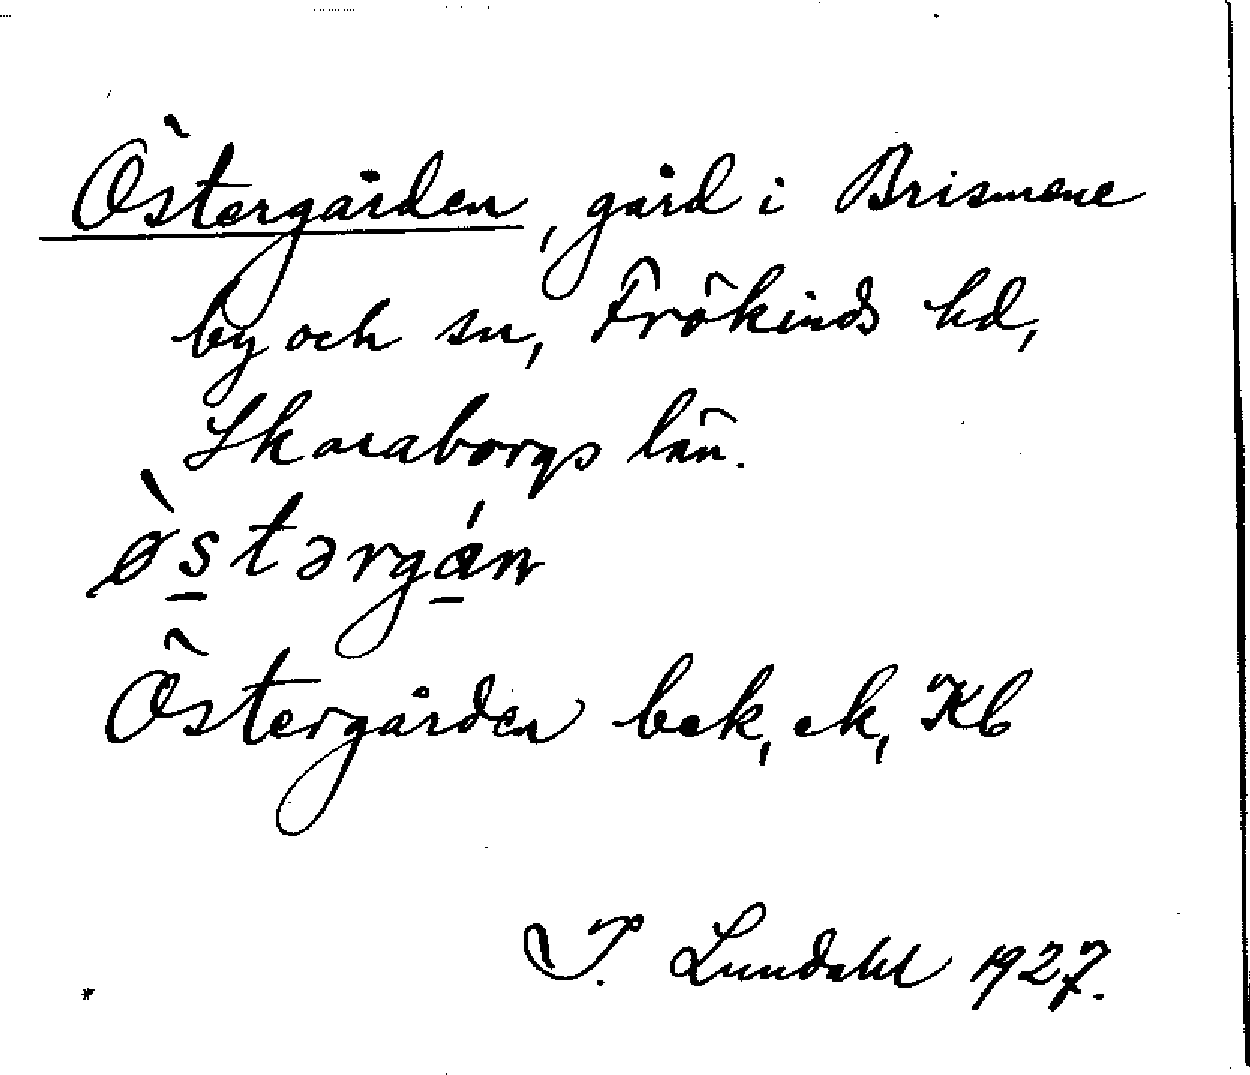 Östergården, gård i Brismene
by och sn, Frökinds hd,
Skaraborgs län.
ø̀stərgán
Östergården bek, ek, Kb
I. Lundahl 1927.